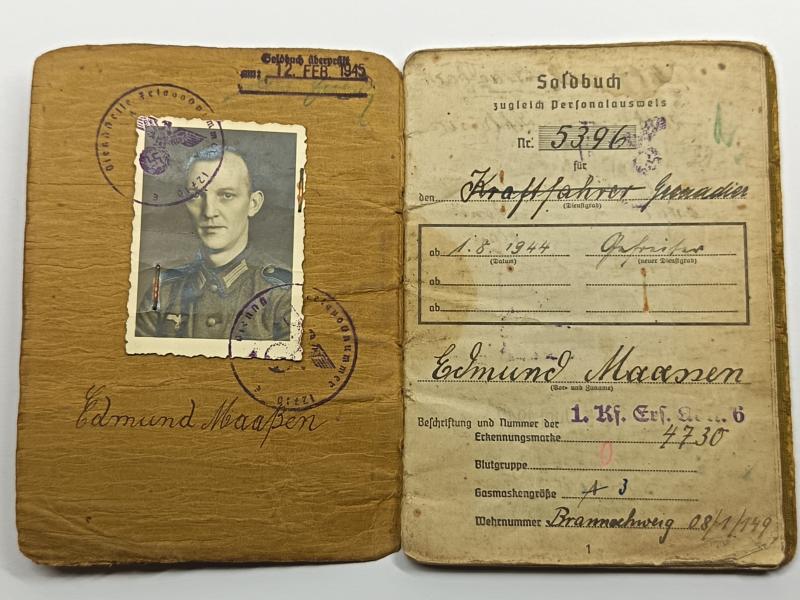 Soldbuch überprüft
am: 12. FEB. 1945
Dienststelle Feldpostnummer
12710 E
Dienststelle Feldpostnummer
12710 E
Edmund Maaßen
Soldbuch
zugleich Personalausweis
Nr. 5396
für
den Kraftfahrer Grenadier
(Dienstgrad)
ab 1.8.1944 Gefreiter
(Datum) (neuer Dienstgrad)
ab
ab
Edmund Maassen
(Vor- und Zuname)
Beschriftung und Nummer der 1. Kf. Ers. Abt. 6
Erkennungsmarke 4730
Blutgruppe 0
Gasmaskengröße A 3
Wehrnummer Braunschweig 08/1/149
1